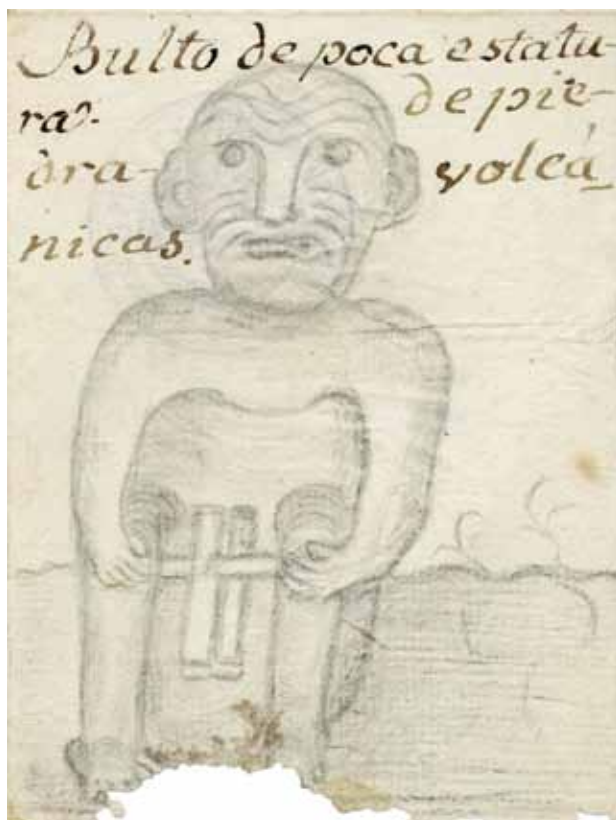 Bulto de poca estatu-
ra. de pie-
dra- volcá-
nicas.